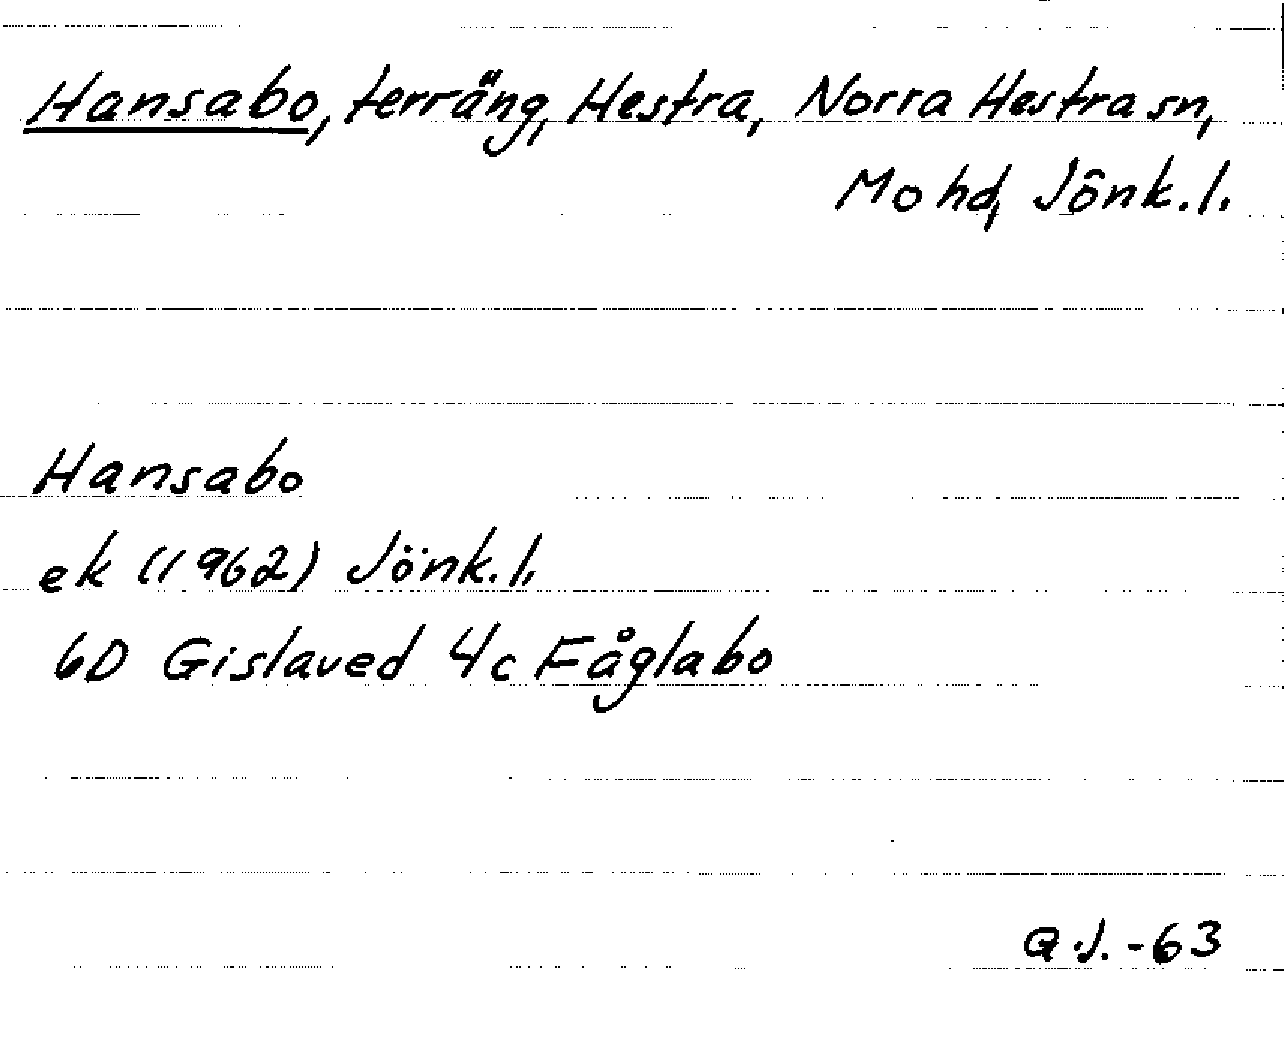 Hansabo, terräng, Hestra, Norra Hestra sn,
Mo hd, Jönk.l.
Hansabo
ek (1962) Jönk.l.
6D Gislaved 4c Fåglabo
G.J. -63